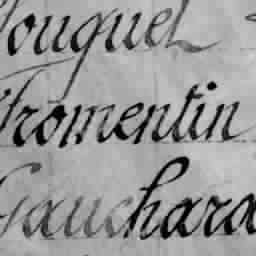 Fouquet
Fromentin
Gauchard